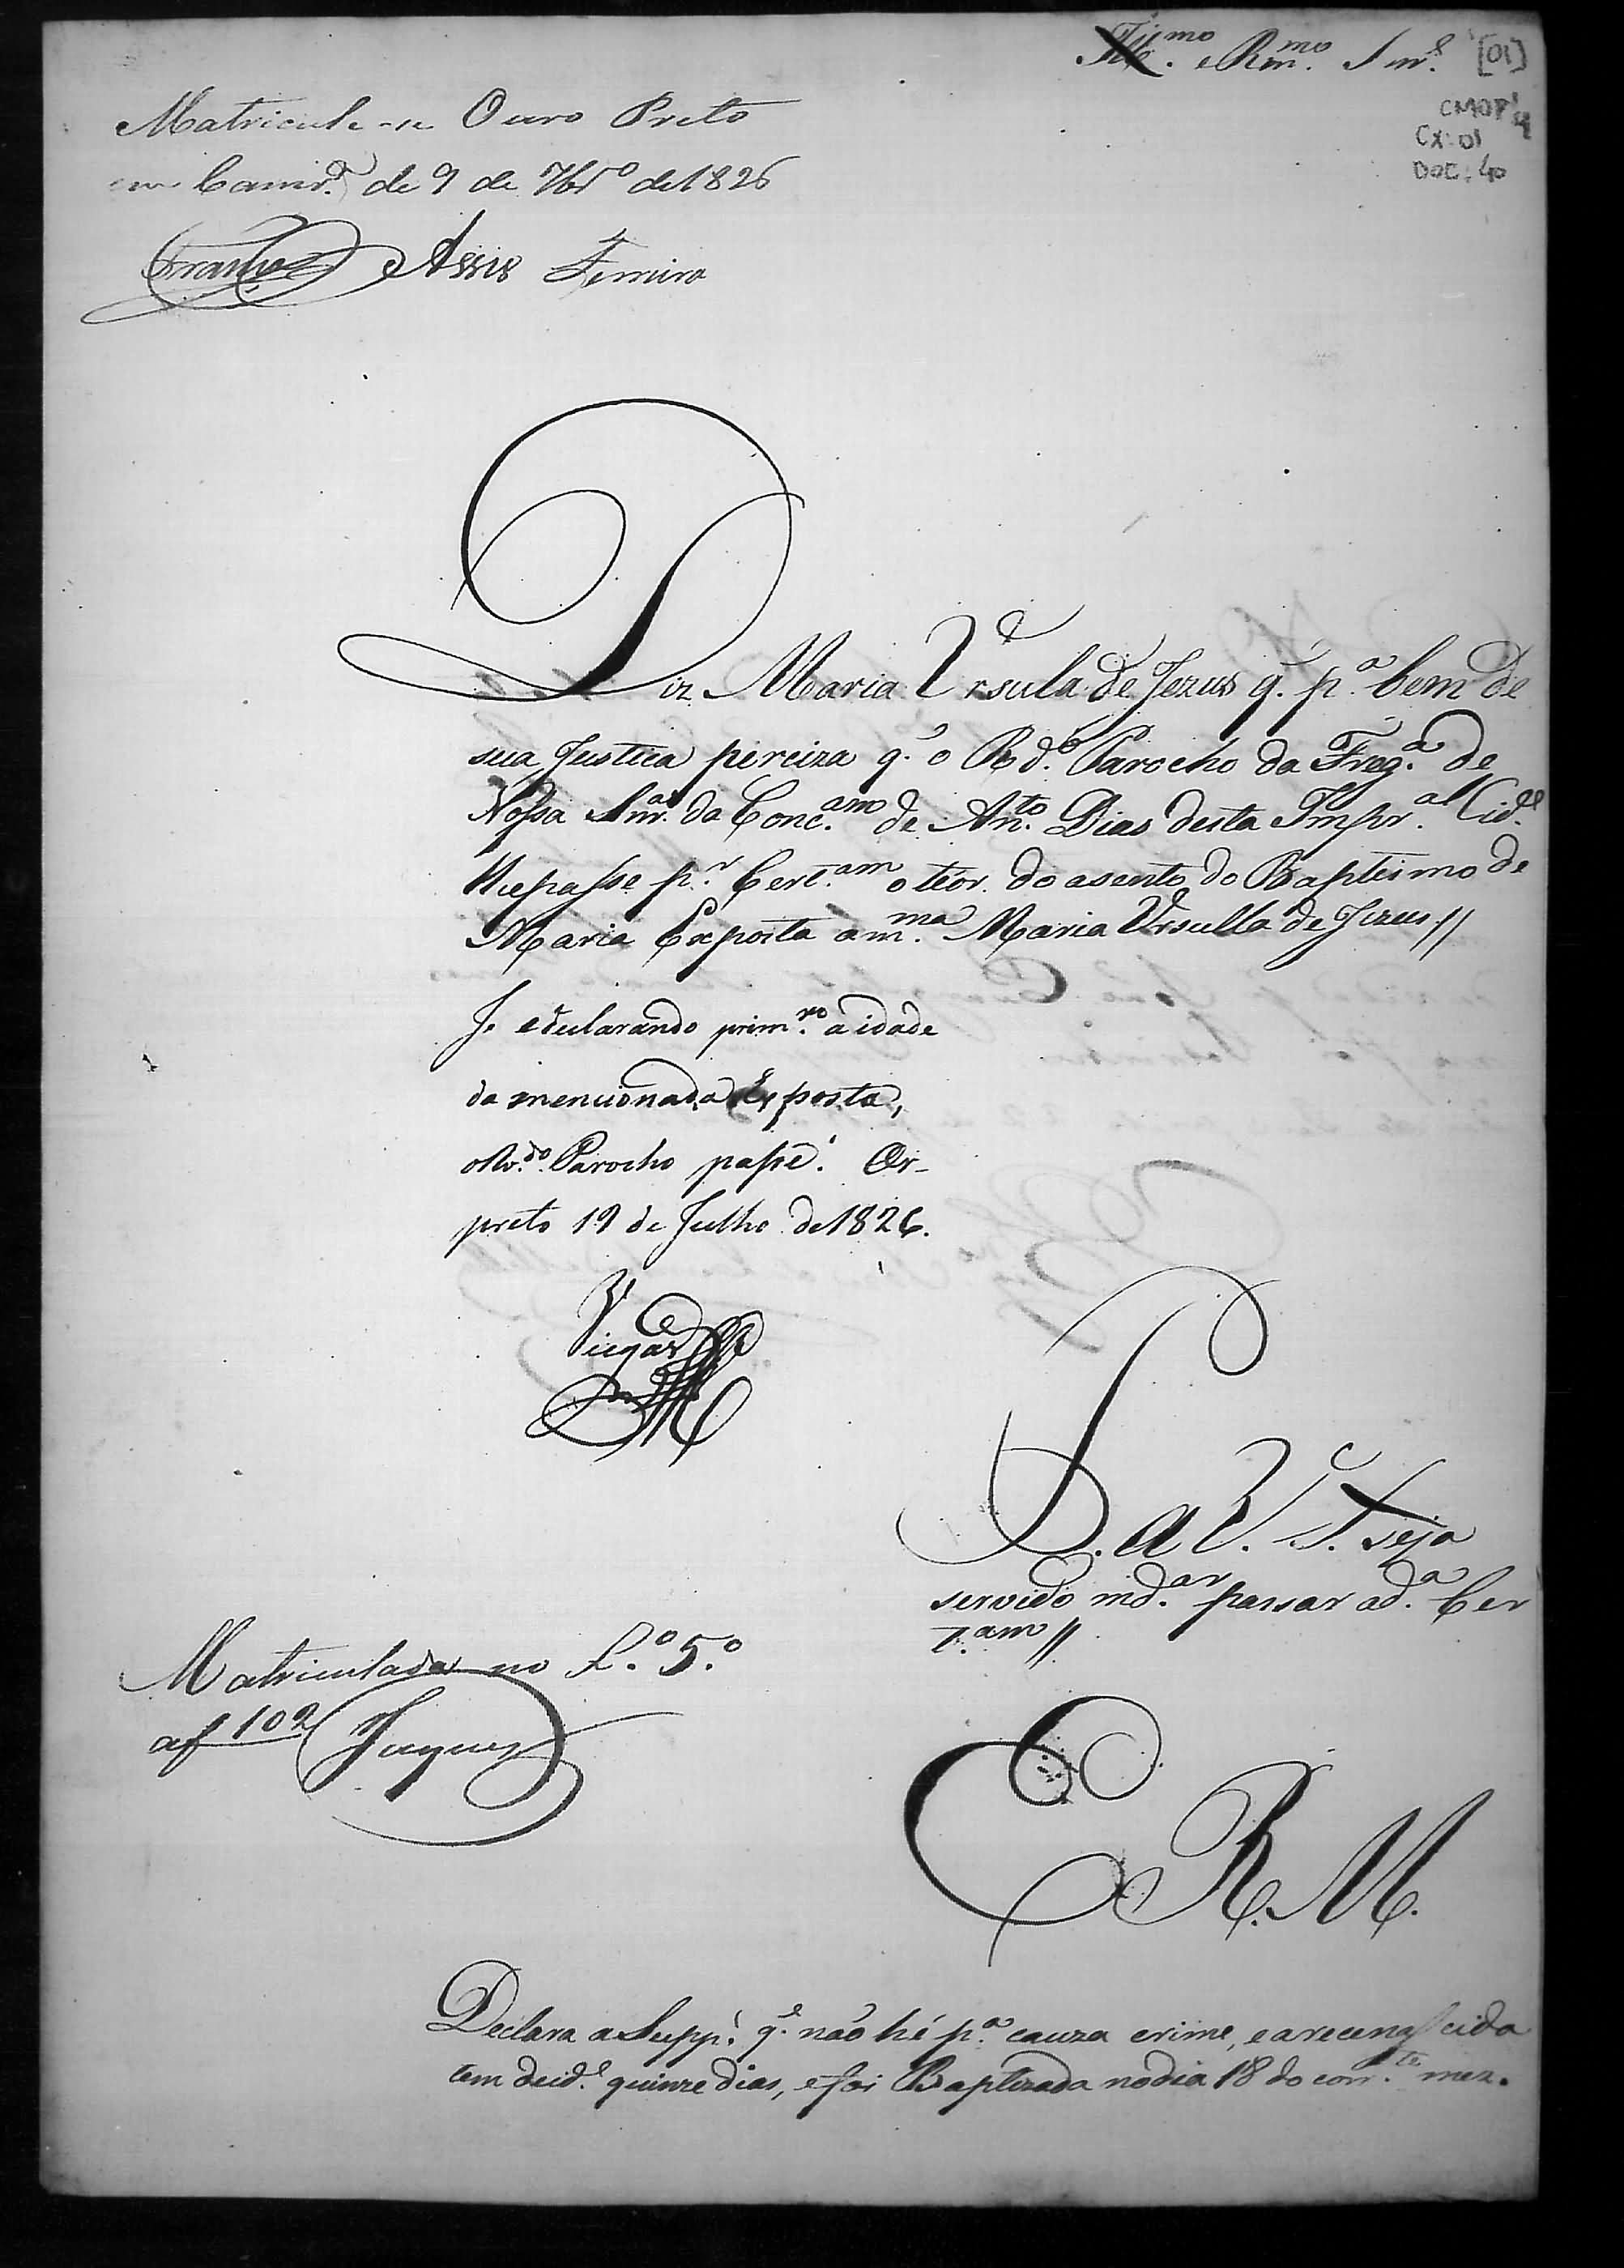 Illmo. e Rmo. Snr.
[01]
CMOP
CX: 01
DOC: 40
Matricule-se Ouro Preto
em Camr.ª de 9 de 7br.º de 1826
Assis Femiro
Diz Maria Ursula de Jezus q. p.ª bem de
sua Justica perciza q. o Rd.º Parocho da Freg.ª de
Nossa Snr.ª da Conc.am de Ant.to Dias desta Impr.al Cid.e
lhe passe p.r Cert.am o teór do asento do Baptismo de
Maria Exposta a m.ma Maria Ursulla de Jezus //
Se e declarando prim.ro a idade
da mencionada Exposta,
o Rv.do Parocho passe. Or-
preto 19 de Julho de 1826.
Viegas
P. a V. S. seja
servido md.ar passar a d.ª Cer
t.am //
Matriculada no L.º 5.º
a f 102 Jaques
E R. M.
Declara a Supp.e q. não hé p.ª cauza crime, e a recenascida
tem de id.e quinze dias, e foi Baptizada no dia 18 do corr.te mez.